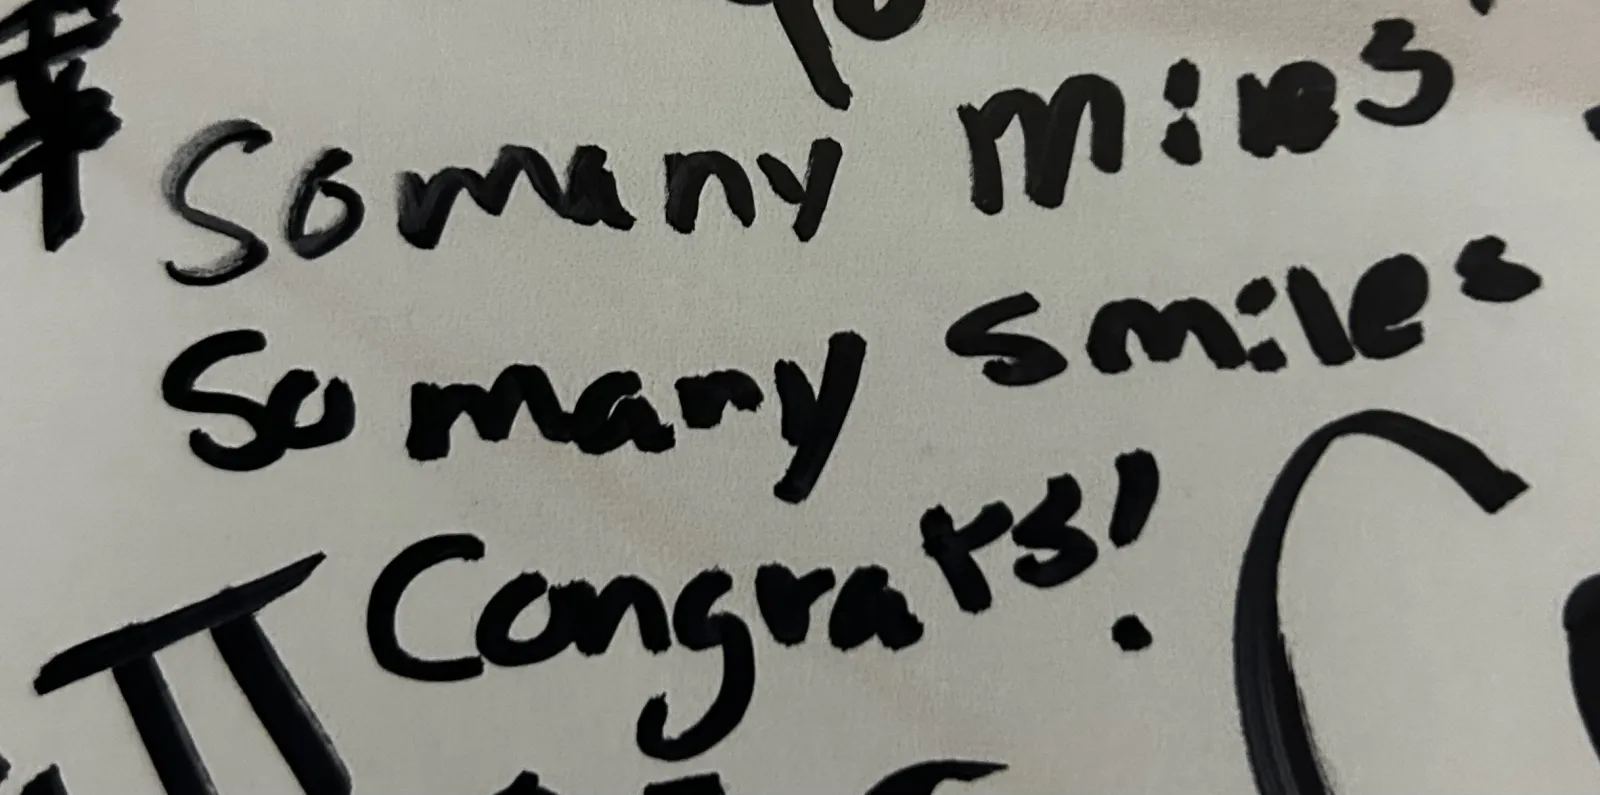 So many miles
So many smiles
Congrats!